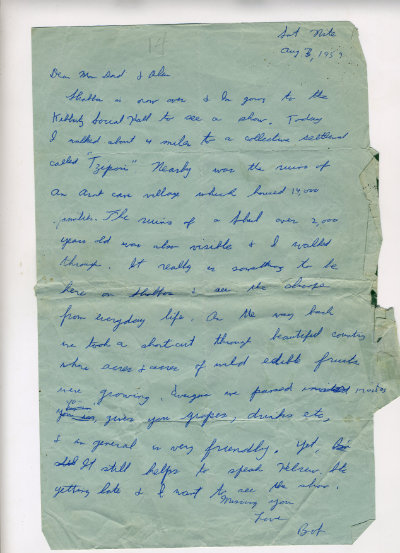 14
Sat Nite
Aug 8, 1959
Dear Mom Dad & Alan
Shabbos is now over & Im going to the
Kibbutz Social Hall to see a show. Today
I walked about 4 miles to a collective settlement
called "Tzipori" Nearby was the ruins of
an Arab village which housed 14,000
families. The ruins of a Shul over 2,000
years old was also visible & I walked
through. It really is something to be
here on Shabbos & see the change
from everyday life. On the way back
we took a short-cut through beautiful country
where acres & acres of wild edible fruits
were growing. Everyone we passed invites
you in, gives you grapes, drinks etc,
& in general is very friendly. Yet,
it still helps to speak Hebrew. Its
getting late & I want to see the show.
Missing you
Love
Bob